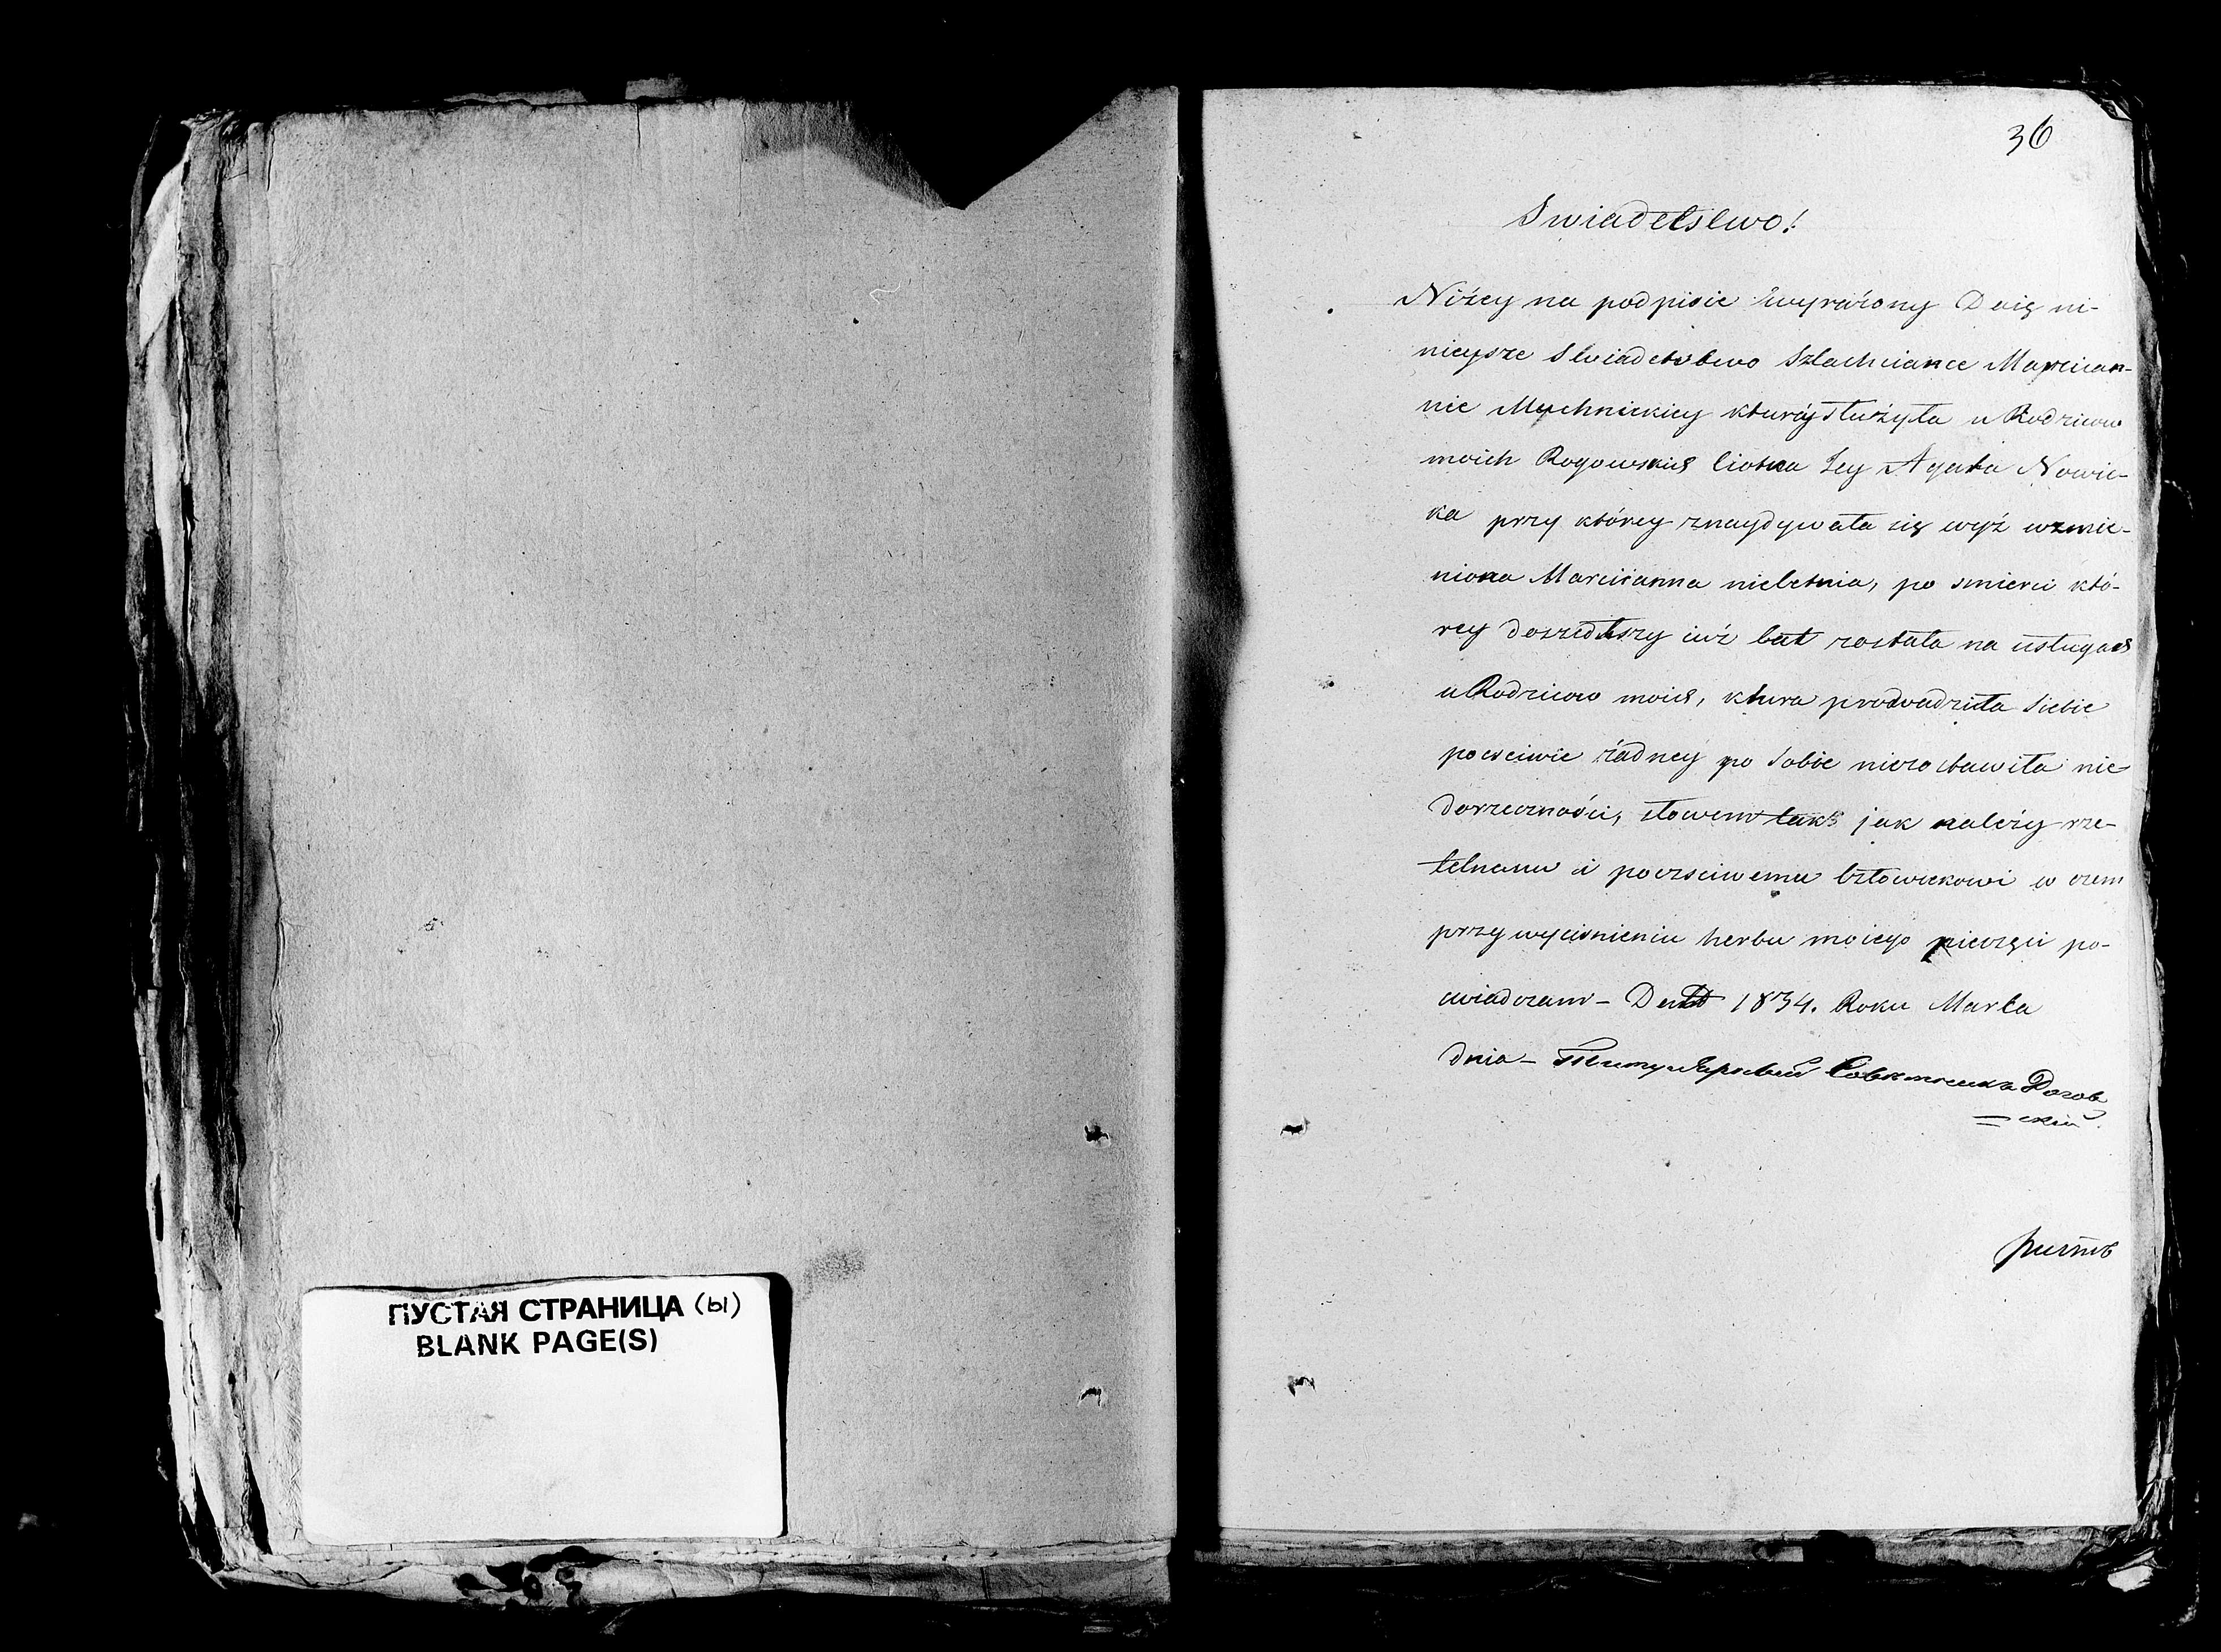 ПУСТАЯ СТРАНИЦА (ы)
BLANK PAGE(S)
36
Swiadetstwo!
Niżey na podpisie wyrażony Daię ni-
nieysze Swiadetstwo Szlachciance Marcian-
nie Mychnickiey kturáy służyła u Rodzicow
moich Rogowskich Ciotka Jey Agata Nowic-
ka przy którey znaydywała się wyż wzmie-
niona Marciianna nieletnia, po smierci któ-
rey doszedłszy iuż lat została na usługach
u Rodzicow moich, ktura prowadziła siebie
pocsciwie żadney po sobie niezostawiła nie
dorzeczności, słowem tak jak należy rze-
telnemu i poczsciwemu Człowiekowi w czem
przy wycisnieniu herbu moiego pieczęci po-
swiadczam - Datt 1834. Roku Marta
dnia - Титулярный Советникъ Рогов
=ский.